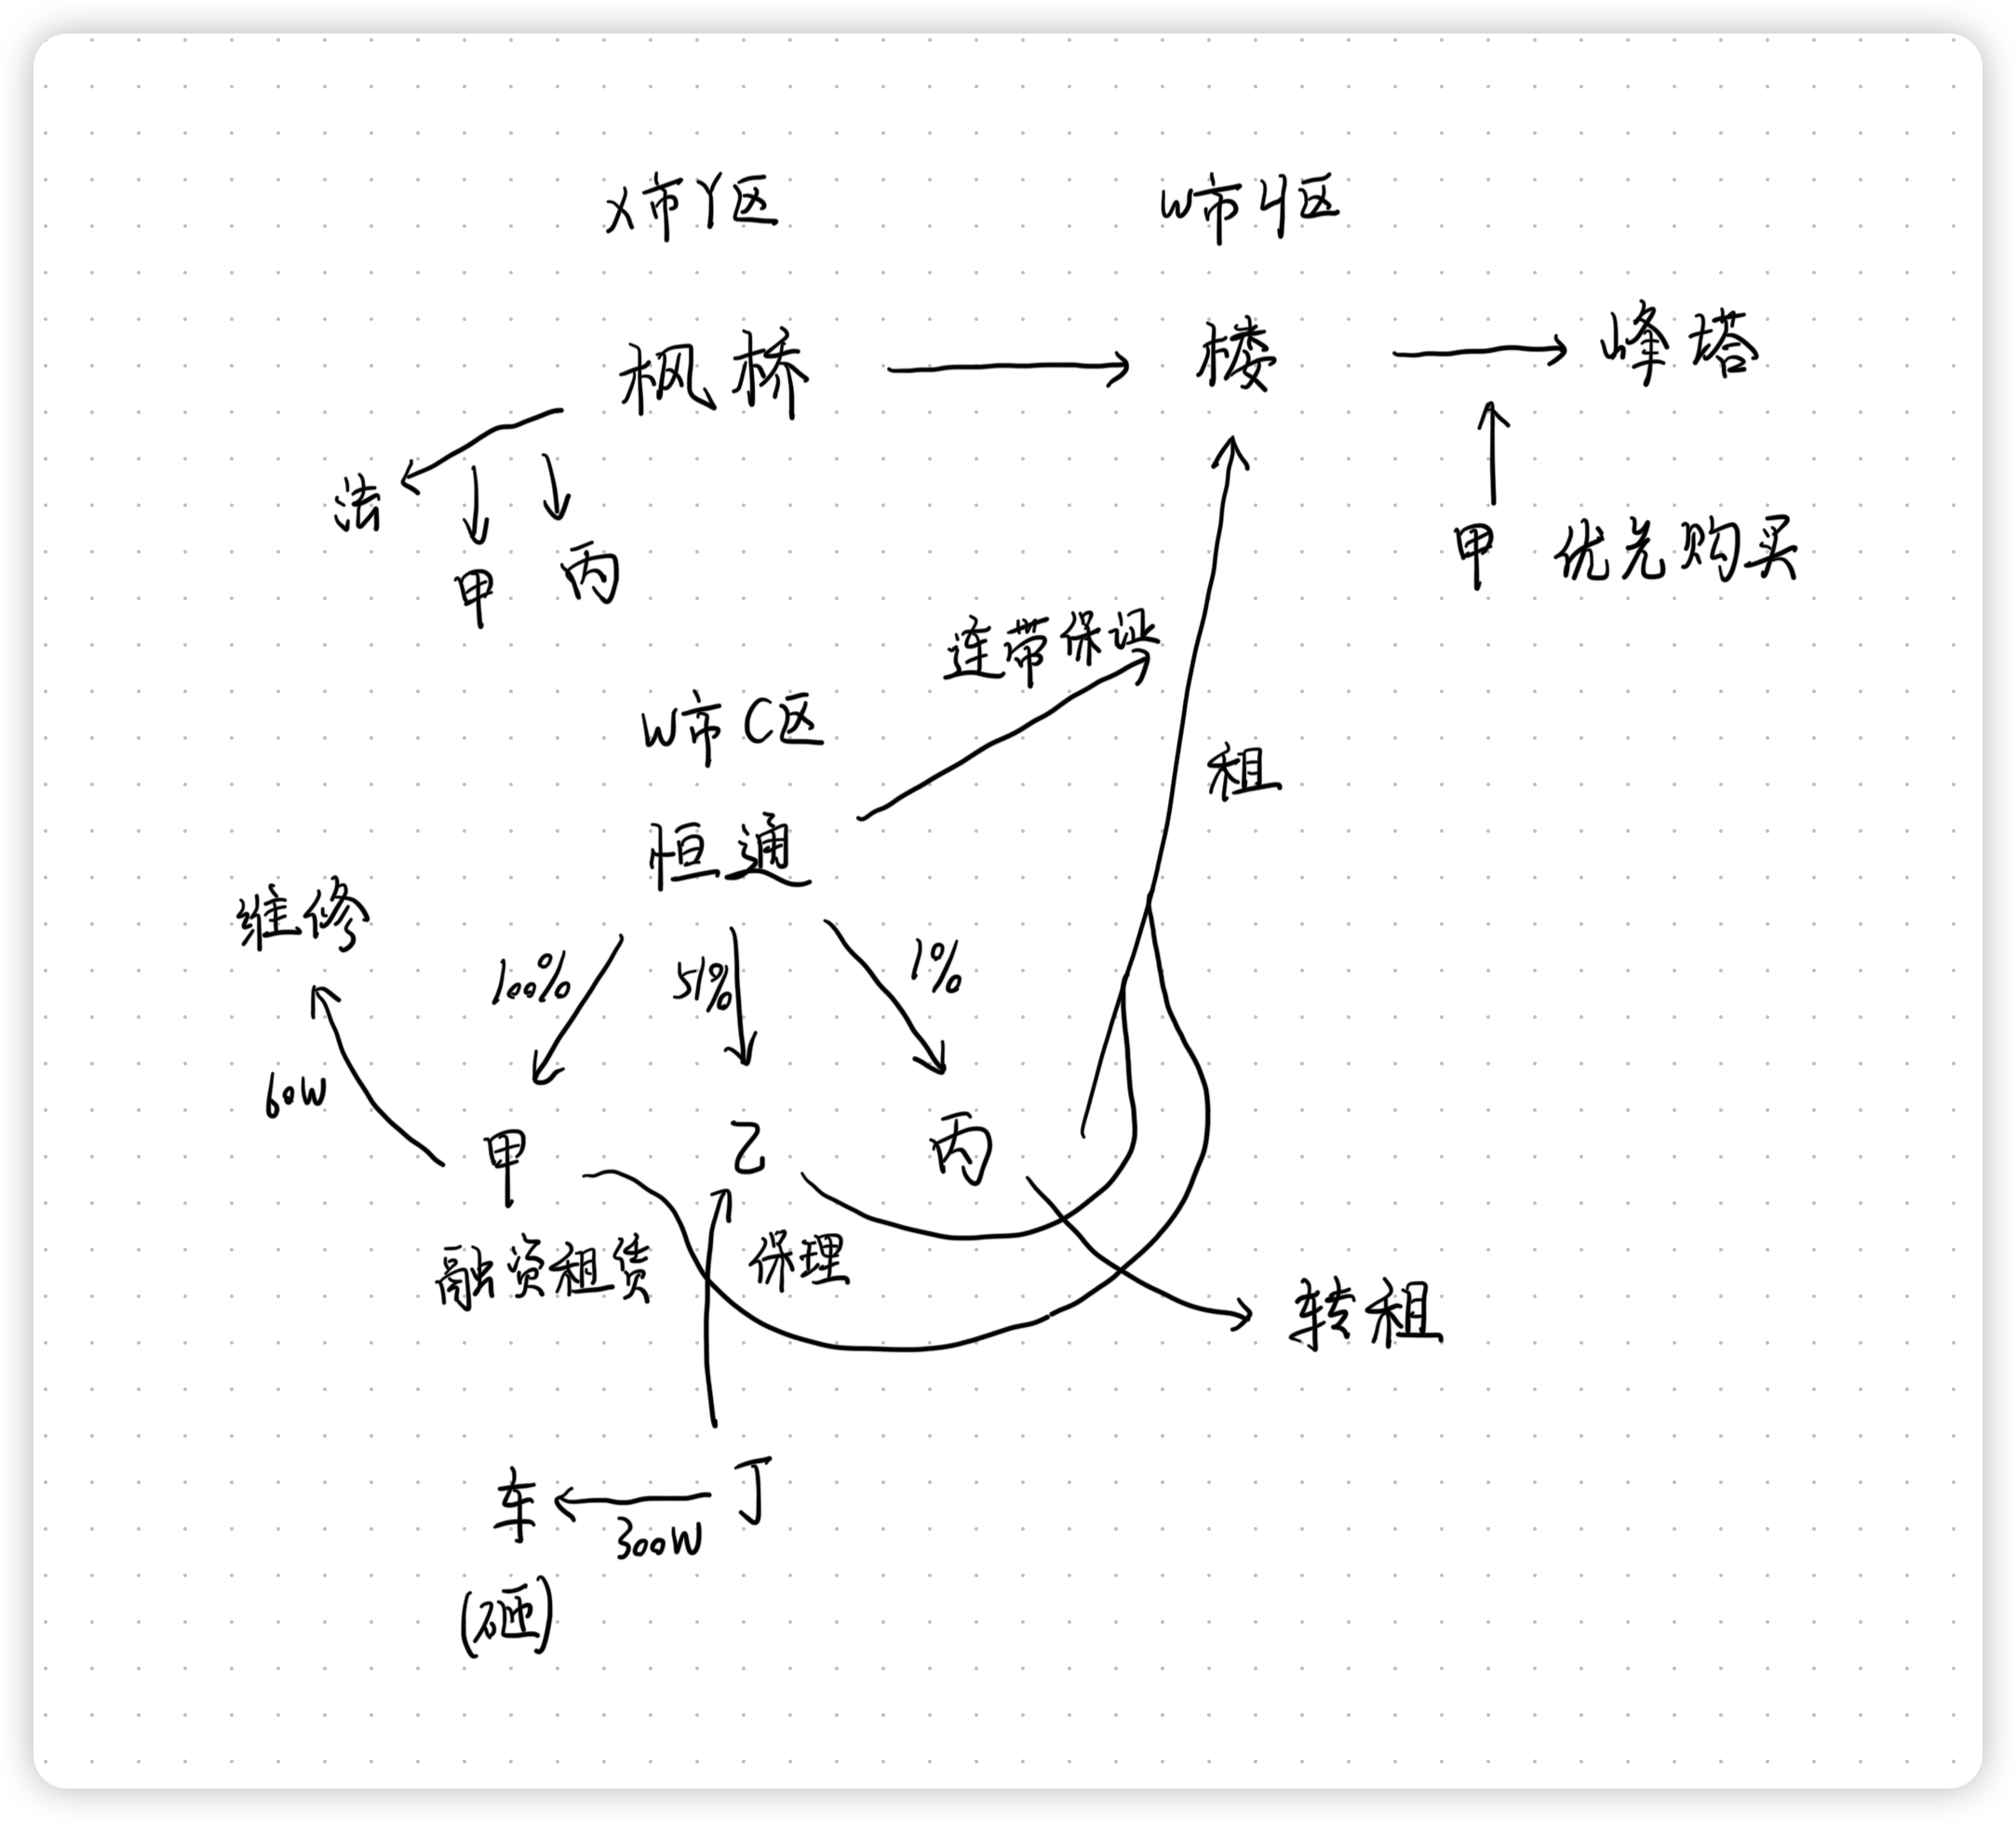 X市Y区
W市H区
枫桥
楼
峰塔
法
甲
丙
甲 优先购买
连带保证
W市C区
租
恒通
维修
100%
51%
1%
60W
甲
乙
丙
融资租赁
保理
转租
车
300W
丁
(硒)